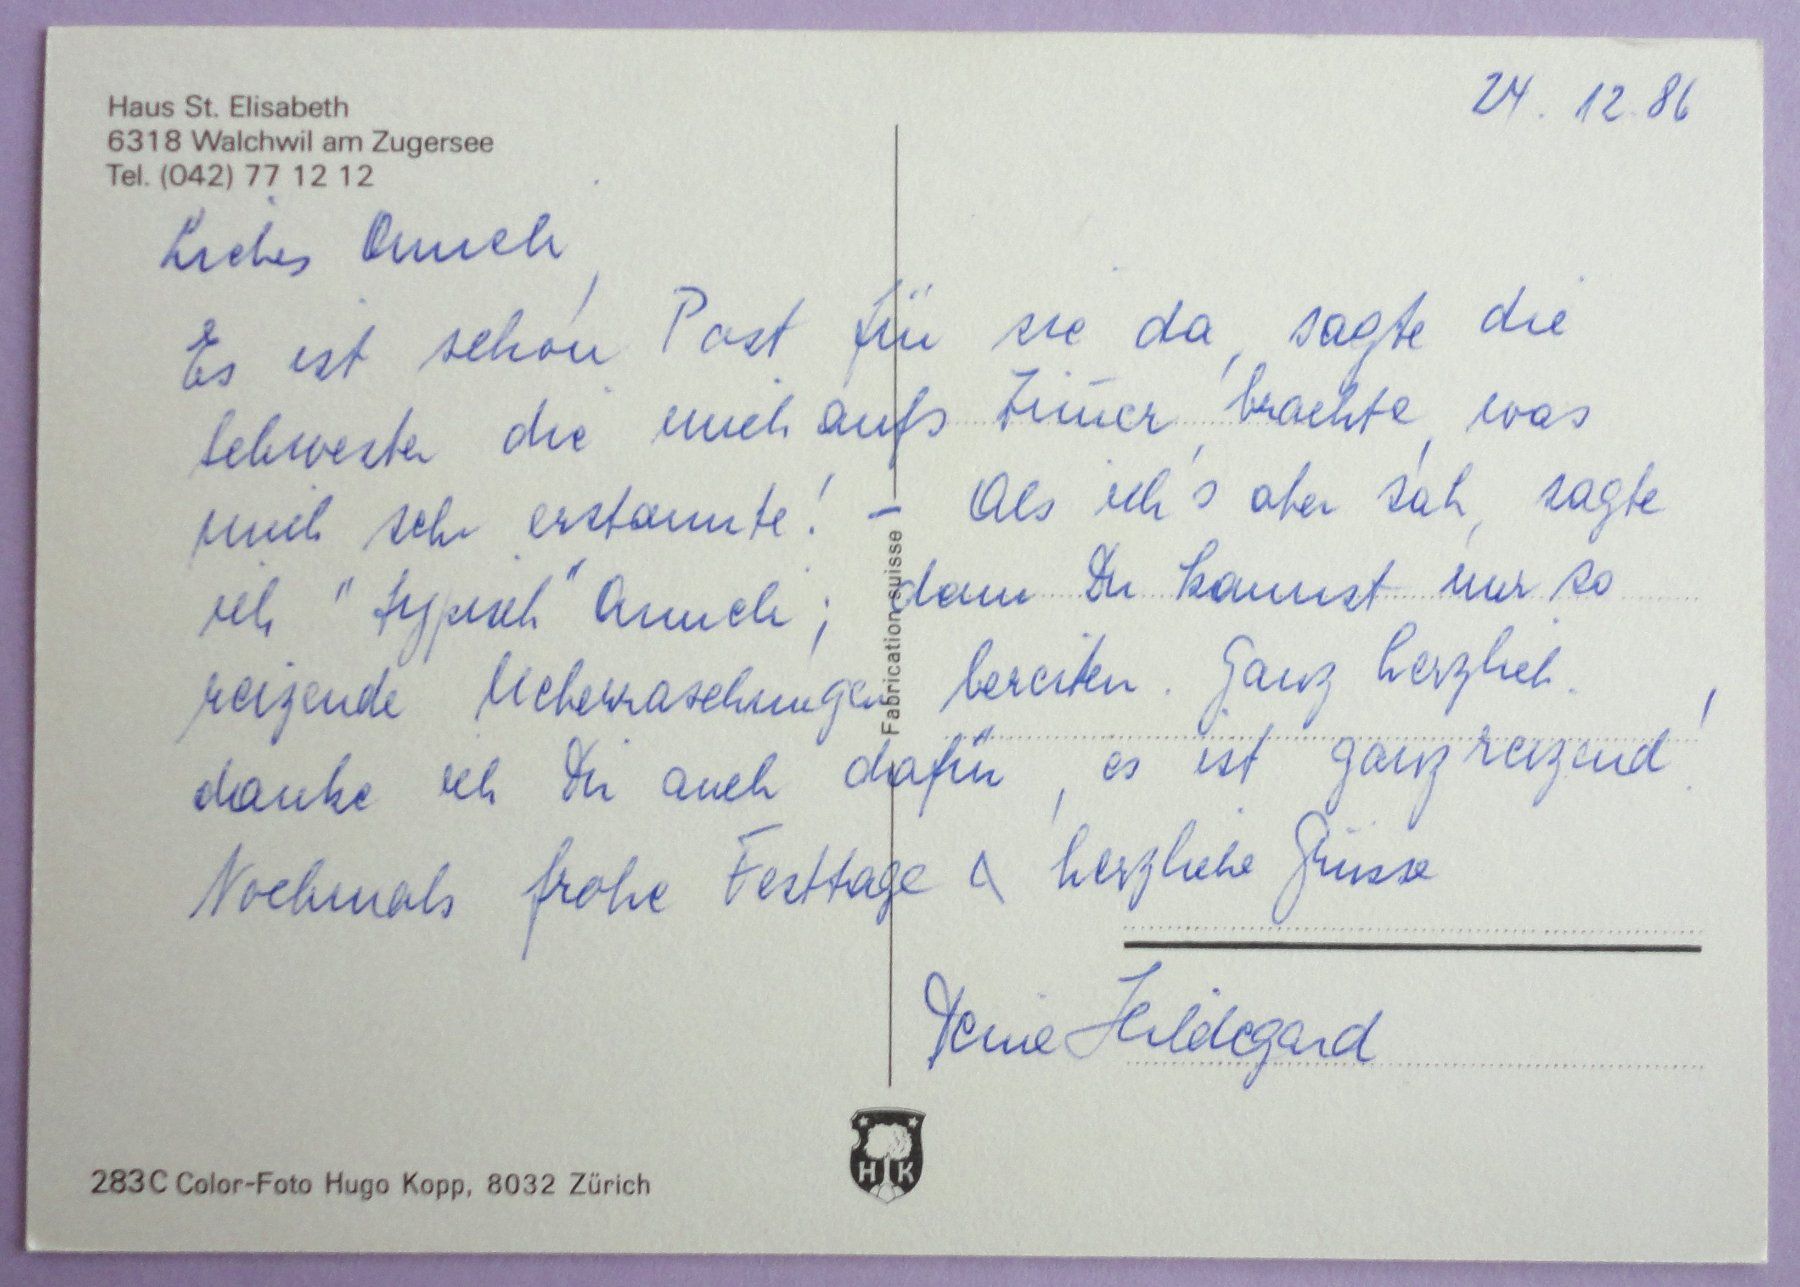 Haus St. Elisabeth
6318 Walchwil am Zugersee
Tel. (042) 77 12 12
24. 12. 86
Liebes Anneli,
Es ist schon Post für sie da, sagte die
Schwester die mich aufs Zim̄er brachte, was
mich sehr erstaunte! – Als ich's aber sah, sagte
ich "typisch" Anneli; denn Du kannst nur so
reizende Ueberraschungen bereiten. Ganz herzlich
danke ich Dir auch dafür, es ist ganz reizend!
Nochmals frohe Festtage & herzliche Grüsse
Deine Hildegard
Fabrication suisse
H K
283C Color-Foto Hugo Kopp, 8032 Zürich